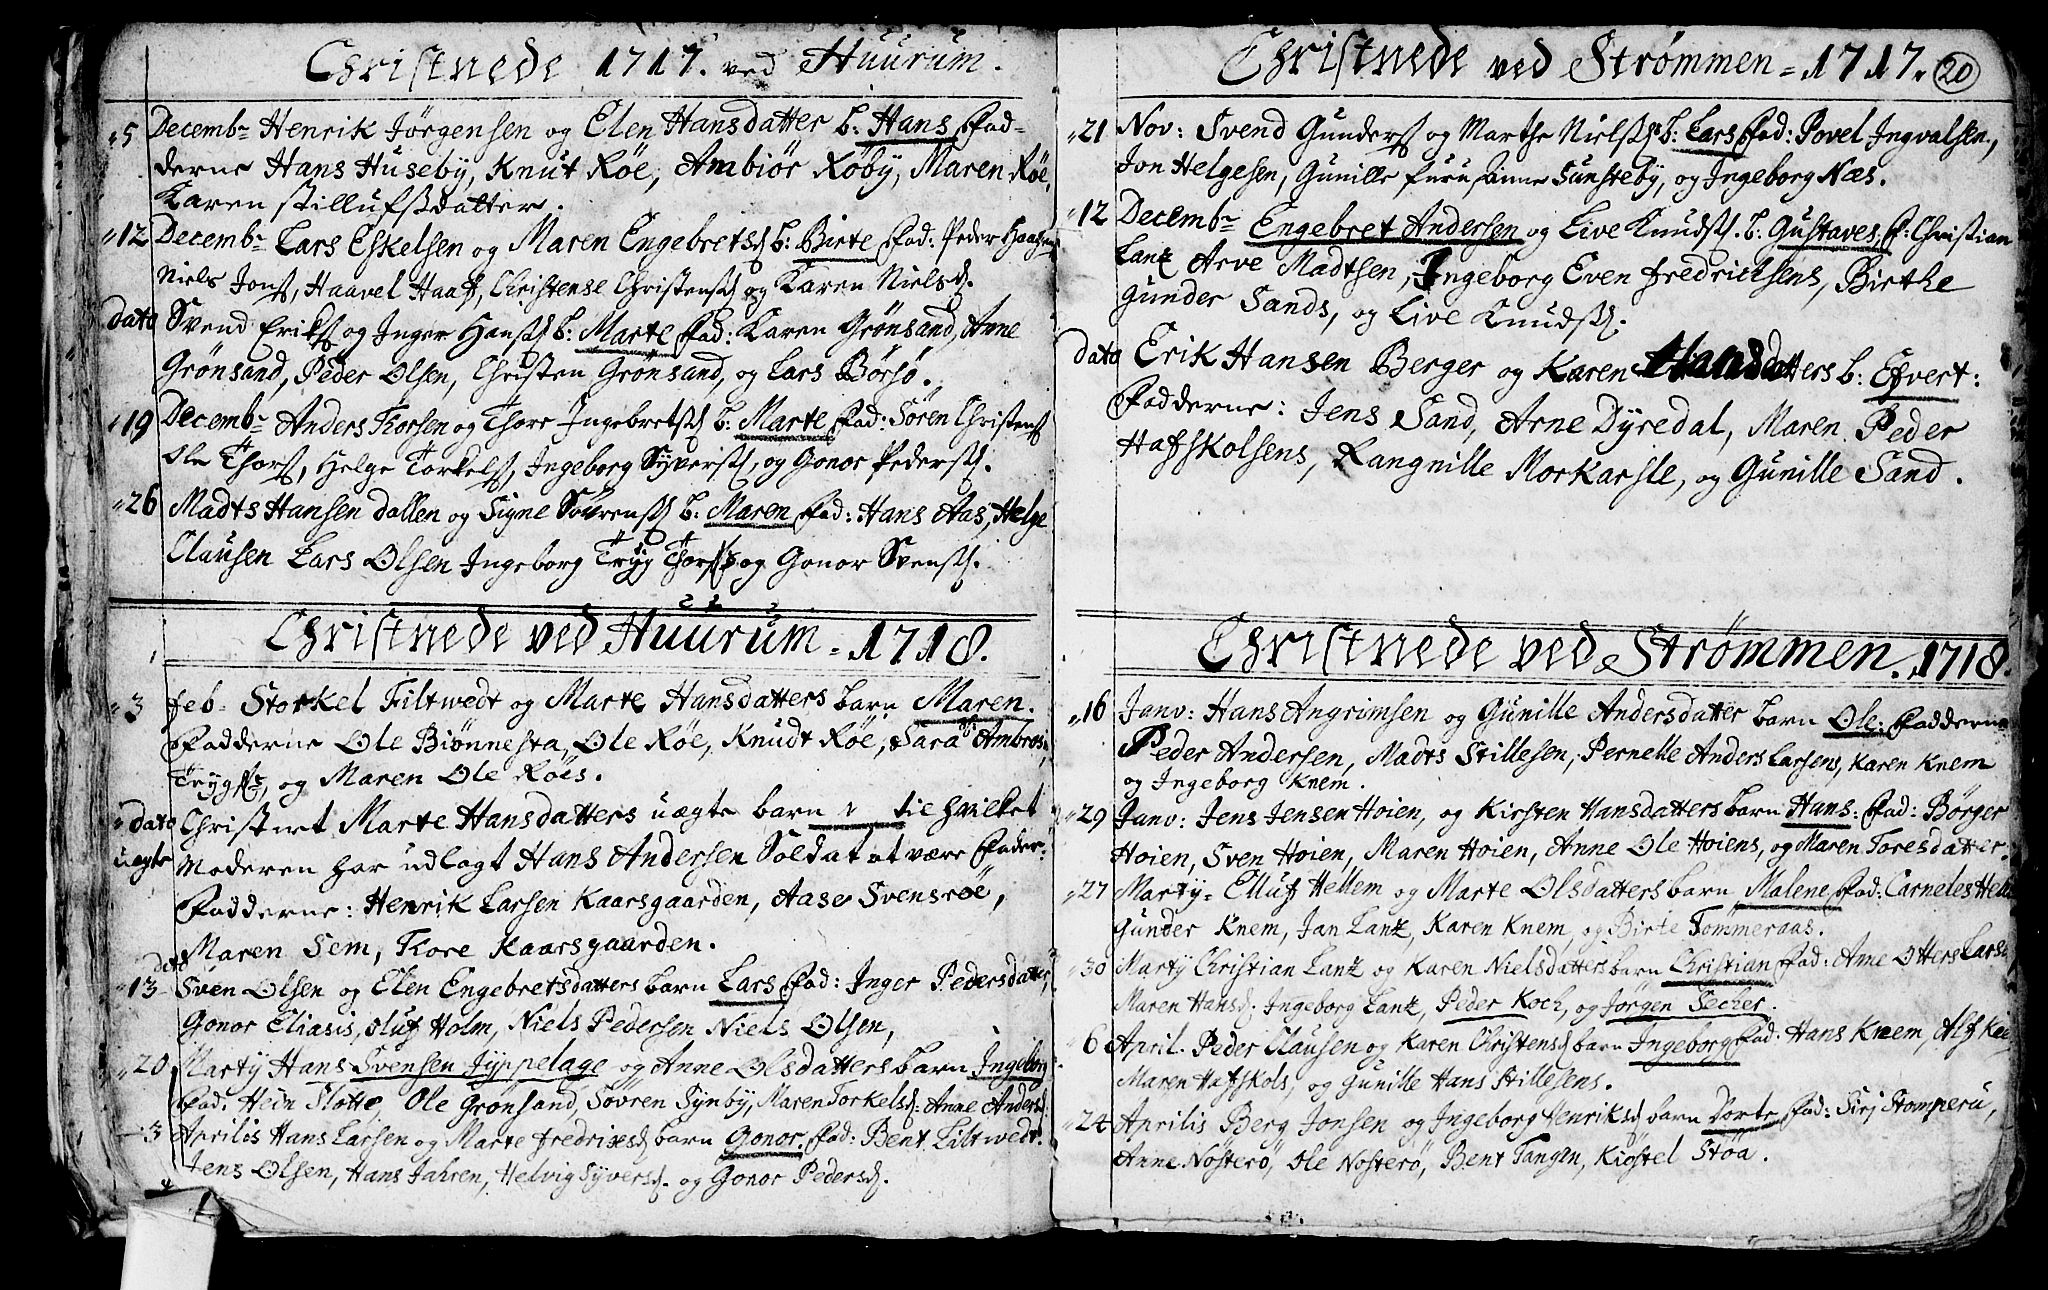 Christnede 1717. ved Huurum.
5 Decemb: Henrik Jörgensen og Elen Hansdatter b: Hans Fad-
derne Hans Huseby, Knut Röe, Ambiör Röby, Maren Röe,
Karen stillufsdatter.
12 Decemb: Lars Eskelsen og Maren Engebretsd b: Birte Fad: Peder
Niels Jons, Haavel Haaf, Christense Christensd og Karen Nielsd.
dato Svend Eriks og Inger Hansd b: Marte Fad: Karen Grönsand, Anne
Grönsand, Peder Olsen, Christen Grönsand, og Lars Börsö.
19 Decemb: Anders Thorsen og Thore Ingebretsd b: Marte Fad: Sören Christens
Ole Thors, Helge Torkels, Ingeborg Syversd, og Gonor Pedersd.
26 Madts Hansen dallen og Signe Sövrensd b: Maren Fad: Hans Aas, Helge
Clausen Lars Olsen Ingeborg Tryg Thors og Gonor Svensd.
Christnede ved Huurum = 1718.
3 feb= Storkel Filtwedt og Marte Hansdatters barn Maren.
Fadderne Ole Biönnesta, Ole Röe, Knudt Röe, Sara Ambros,
og Maren Ole Röes.
dato Christnet Marte Hansdatters uægte barn til hvilket
uægte Moderen har udlagt Hans Andersen Soldat at være Fader:
Fadderne: Henrik Larsen Kaarsgaarden, Aase Svensröe,
Maren Sem, Tore Kaarsgaarden.
13 dato Sven Olsen og Elen Engebretsdatters barn Lars Fad: Inger Pedersdatter,
Gonor Eliasis, Oluf Holm, Niels Pedersen Niels Olsen,
20 Marty Hans Svensen Jyppelage og Anne Olsdatters barn Ingeborg
Fad: Hein Slotte, Ole Grönsand, Sövren Synby, Maren Torkelsd: Anne Andersd
3 Aprilis Hans Larsen og Marte Fredrixsd barn Gonor Fad: Bent Filtwedt.
Jens Olsen, Hans Jahren, Helvig Syversd. og Gonor Pedersd.
Christnede ved Strømmen = 1717. 20
21 Nov: Svend Gunders og Marthe Nielsd b: Lars Fad: Povel Ingvalsen,
Jon Helgesen, Gunille furu, Anne Sunsteby, og Ingeborg Næs.
12 Decemb: Engebret Andersen og Live Knudsd b: Gustaves F: Christian
Lantz Arve Madtsen, Ingeborg Even fredrichsens, Birthe
Gunder Sands, og Live Knudsd:
dato Erik Hansen Berger og Karen Hansdatters b: Efvert:
Fadderne: Jens Sand, Arne Dyredal, Maren Peder
Hafskolsens, Rangnille Morkarsle, og Gunille Sand.
Christnede ved Strømmen. 1718.
16 Janv: Hans Angrimsen og Gunille Andersdatter barn Ole: Fadderne
Peder Andersen, Madts Stillesen, Pernelle Anders Larsens, Karen Knem
og Ingeborg Knem.
29 Janv: Jens Jensen Hoien, og Kirsten Hansdatters barn Hans: Fad: Börger
Hoien, Sven Hoien, Maren Hoien, Anne Ole Hoiens, og Maren Toresdatter.
27 Marty= Elluf Hellem og Marte Olsdatters barn Malene Fad: Carneles
Gunder Knem, Jan Lantz, Karen Knem, og Birte Tømmeraas.
30 Marty Christian Lantz og Karen Nielsdatters barn Christian Fad: Anne Otters Larsd,
Maren Hansd; Ingeborg Lantz, Peder Koch, og Jørgen Secher.
6 April. Peder Clausen og Karen Christensd barn Ingeborg Fad: Hans Knem, Alf
Maren Hafskols, og Gunille Hans Stillesens.
24 Aprilis Berg Jonsen og Ingeborg Henriksd barn Dorte Fad: Sirj Stomperu,
Anne Nösterö, Ole Nosterö, Bent Tangen, Kiöstel Stöa.